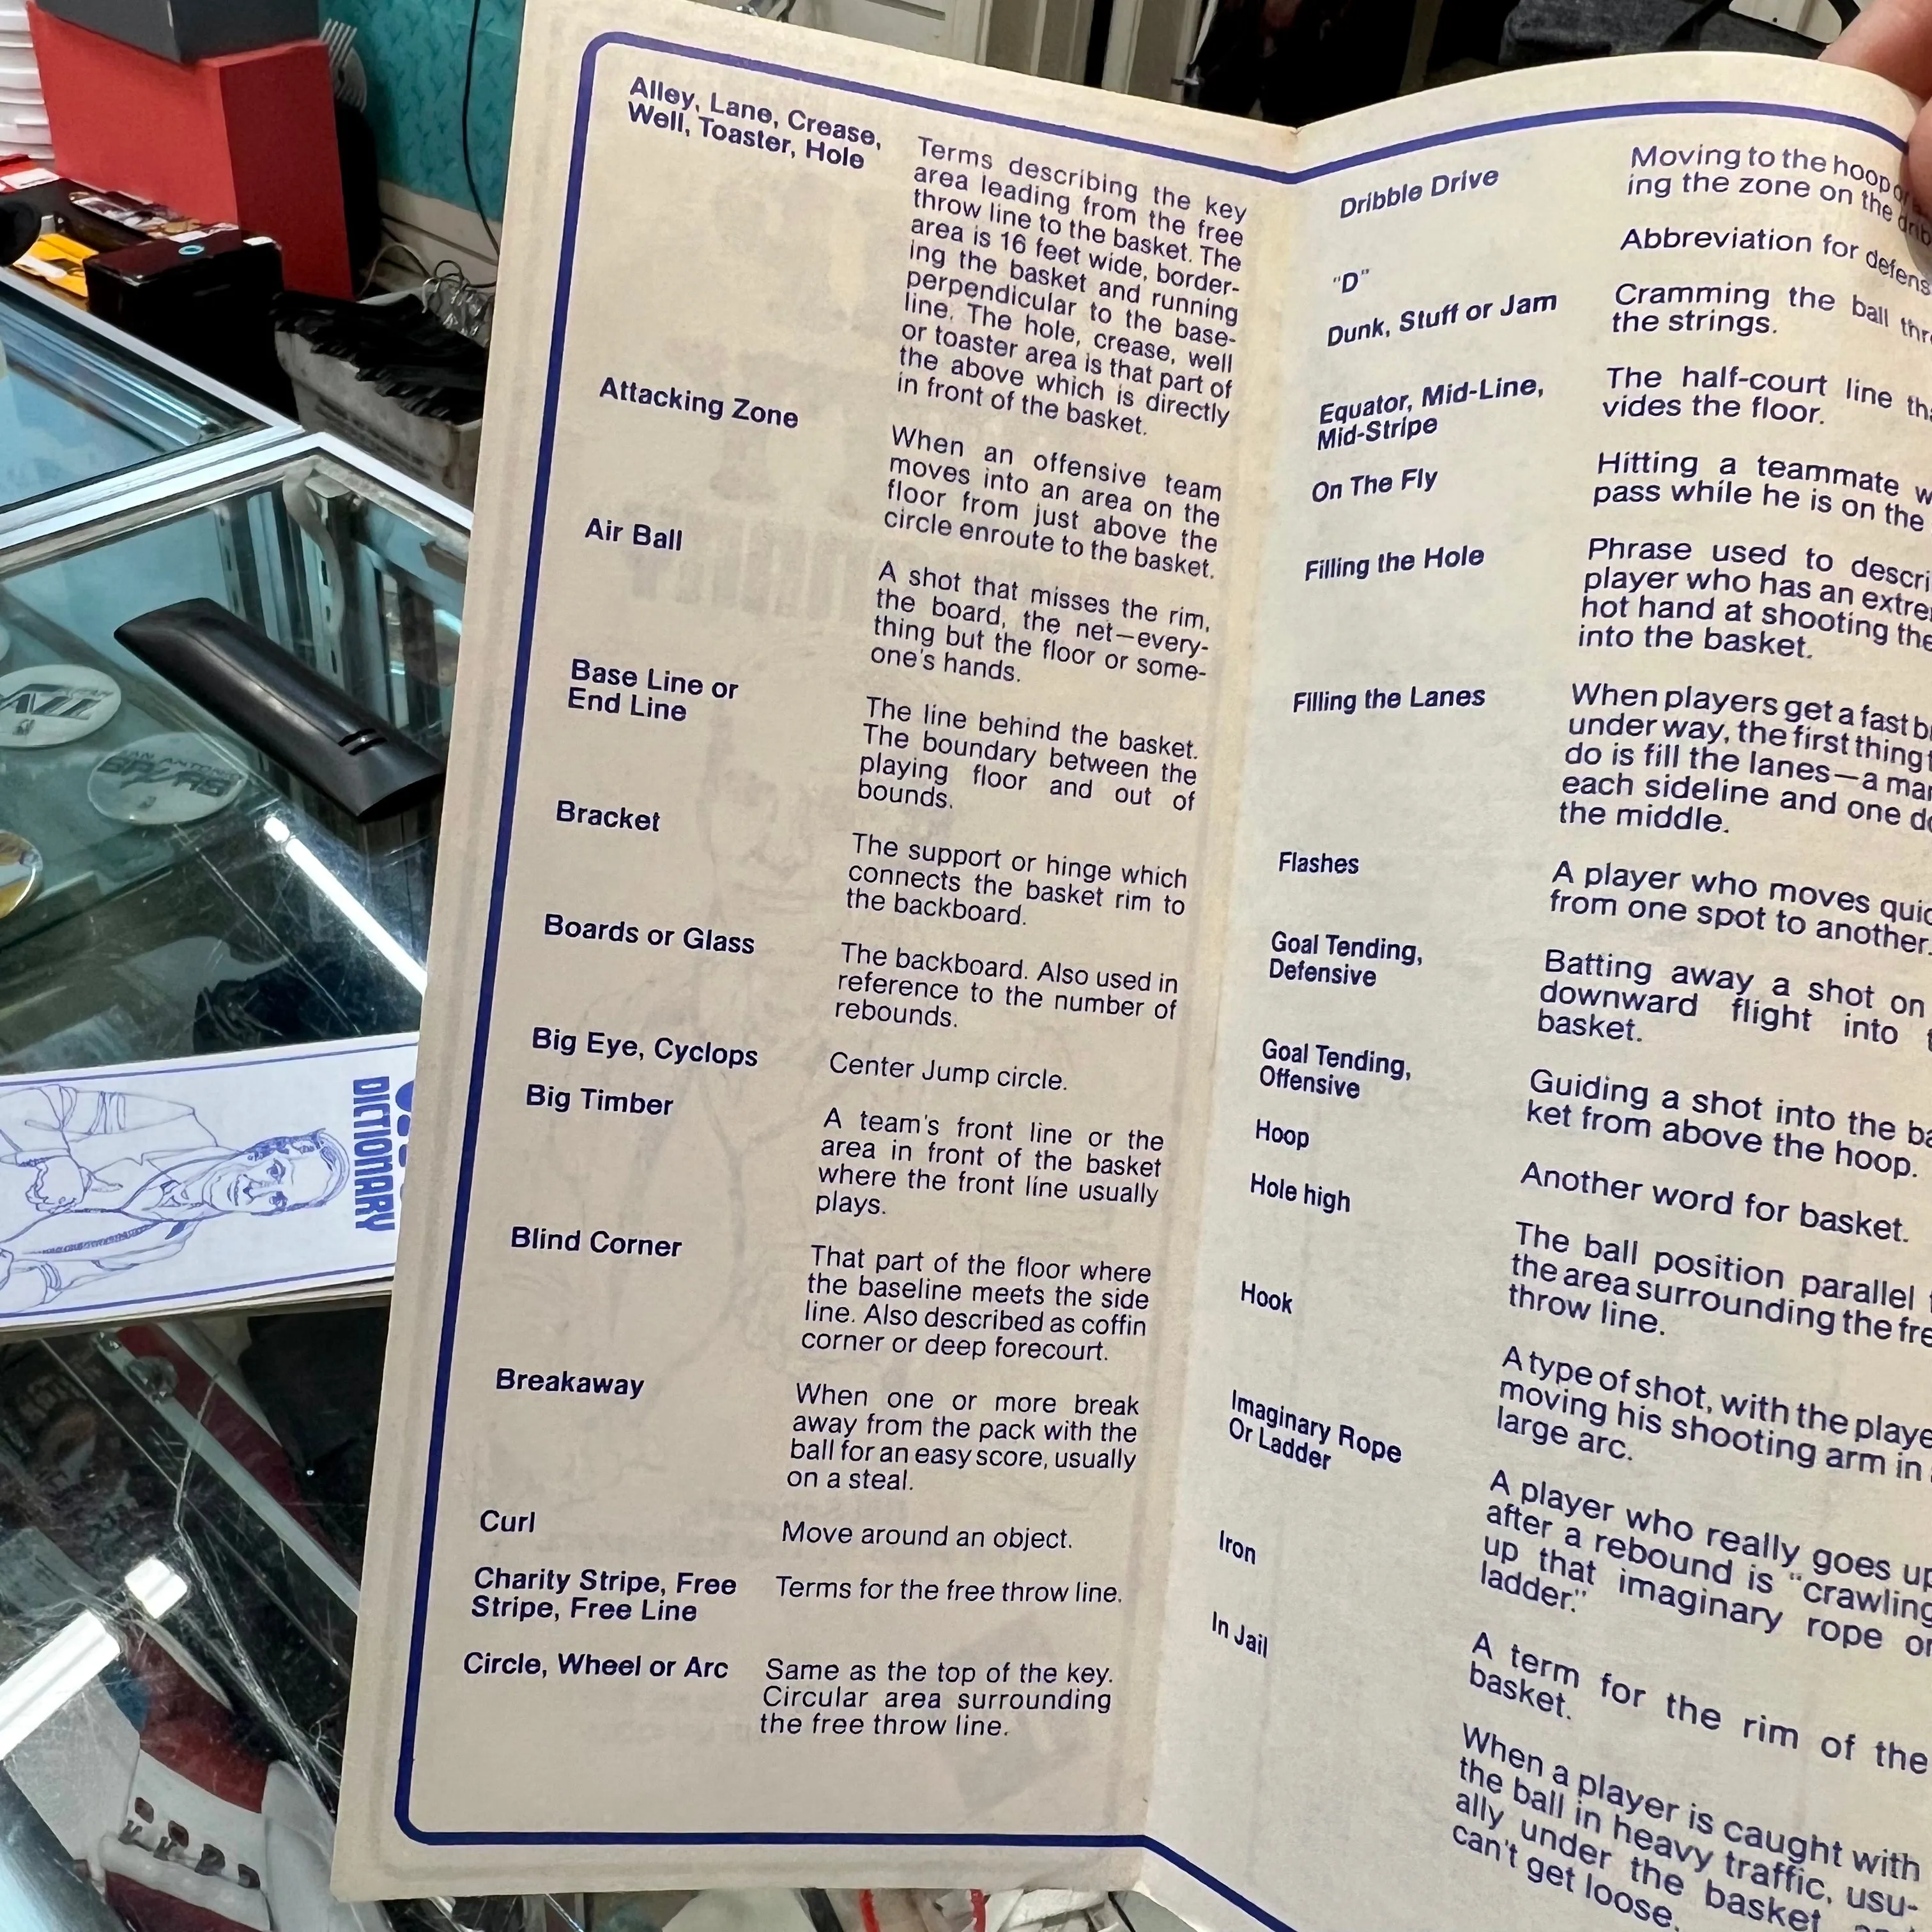 Alley, Lane, Crease,
Well, Toaster, Hole
Terms describing the key
area leading from the free
throw line to the basket. The
area is 16 feet wide, border-
ing the basket and running
perpendicular to the base-
line. The hole, crease, well
or toaster area is that part of
the above which is directly
in front of the basket.
Attacking Zone
When an offensive team
moves into an area on the
floor from just above the
circle enroute to the basket.
Air Ball
A shot that misses the rim,
the board, the net—every-
thing but the floor or some-
one's hands.
Base Line or
End Line
The line behind the basket.
The boundary between the
playing floor and out of
bounds.
Bracket
The support or hinge which
connects the basket rim to
the backboard.
Boards or Glass
The backboard. Also used in
reference to the number of
rebounds.
Big Eye, Cyclops
Center Jump circle.
Big Timber
A team's front line or the
area in front of the basket
where the front line usually
plays.
Blind Corner
That part of the floor where
the baseline meets the side
line. Also described as coffin
corner or deep forecourt.
Breakaway
When one or more break
away from the pack with the
ball for an easy score, usually
on a steal.
Curl
Move around an object.
Charity Stripe, Free
Stripe, Free Line
Terms for the free throw line.
Circle, Wheel or Arc
Same as the top of the key.
Circular area surrounding
the free throw line.
Dribble Drive
Moving to the hoop
ing the zone on the
"D"
Abbreviation for defens
Dunk, Stuff or Jam
Cramming the ball thr
the strings.
Equator, Mid-Line,
Mid-Stripe
The half-court line tha
vides the floor.
On The Fly
Hitting a teammate w
pass while he is on the
Filling the Hole
Phrase used to descri
player who has an extre
hot hand at shooting the
into the basket.
Filling the Lanes
When players get a fast b
under way, the first thing t
do is fill the lanes—a ma
each sideline and one do
the middle.
Flashes
A player who moves quic
from one spot to another.
Goal Tending,
Defensive
Batting away a shot on
downward flight into t
basket.
Goal Tending,
Offensive
Guiding a shot into the ba
ket from above the hoop.
Hoop
Another word for basket.
Hole high
The ball position parallel
the area surrounding the fre
throw line.
Hook
A type of shot, with the playe
moving his shooting arm in
large arc.
Imaginary Rope
Or Ladder
A player who really goes up
after a rebound is "crawling
up that imaginary rope or
ladder."
Iron
A term for the rim of the
basket.
In Jail
When a player is caught with
the ball in heavy traffic, usu-
ally under the basket
can't get loose.
DICTIONARY
JAZZ
SAN ANTONIO
SPURS